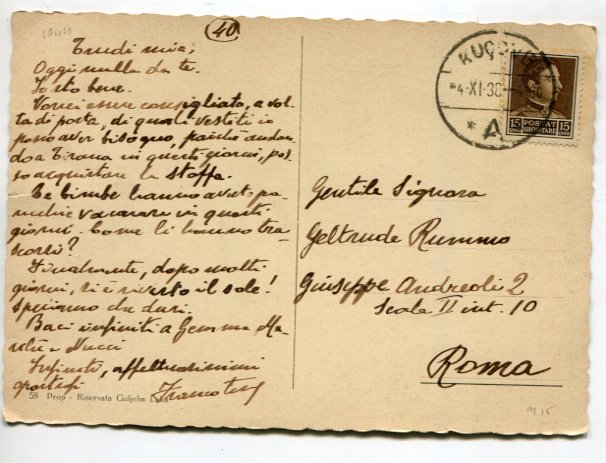 40
Trudi mia,
Oggi nulla da te.
Io sto bene.
Vorrei essere consigliato, a vol-
ta di posta, di quali vestiti io
posso aver bisogno, poiché andan-
do a Tirana in questi giorni, pos-
so acquistare la stoffa.
Le bimbe hanno avute pa-
recchie vacanze in questi
giorni. Come li hanno tra-
scorsi?
Finalmente, dopo molti
giorni, si è rivisto il sole!
Speriamo da duri.
Baci infiniti a Gemma, Ma-
e Nucci
Infiniti, affettuosissimi
58 Prop - Riservata Guljelm Luka
KUÇOVË
4-XI-38
*A
15 POSTAT 15
SHQIPTARE
Gentile Signora
Geltrude Rummo
Giuseppe Andreoli 2
Scala II int. 10
Roma